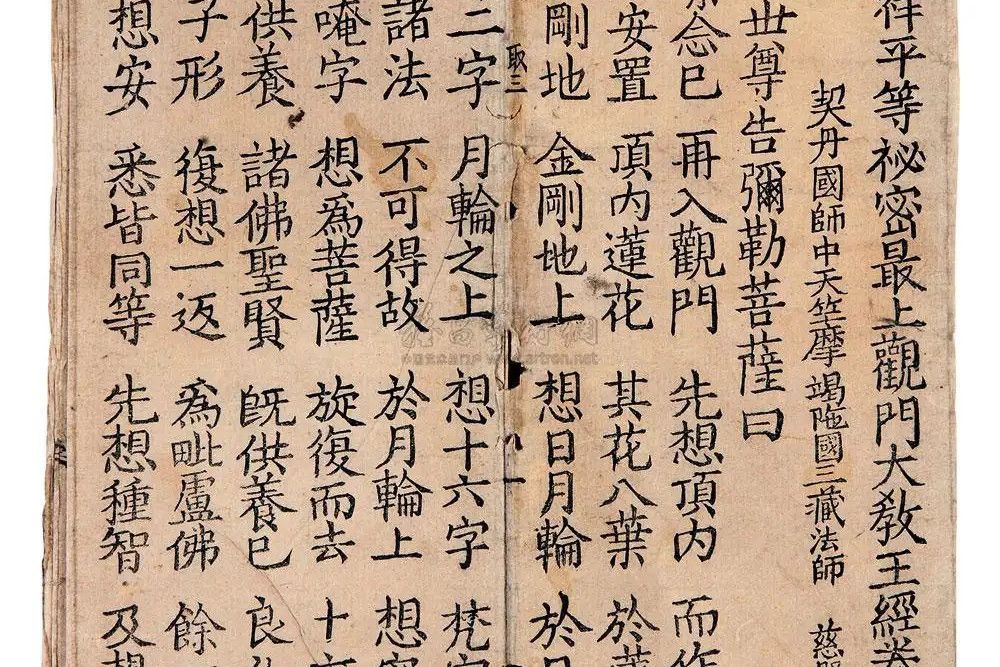 祥平等祕密最上觀門大教王經卷
契丹國師中天竺摩竭陁國三藏法師 慈
世尊告彌勒菩薩曰
念已 再入觀門 先想頂内 而作
安置 頂内蓮花 其花八葉 於
剛地 金剛地上 想日月輪 於日
取三 八 一
二字 月輪之上 想十六字 梵字
諸法 不可得故 於月輪上 想
唵字 想爲菩薩 旋復而去 十
供養 諸佛聖賢 旣供養已 良
子形 復想一返 爲毗盧佛 餘
想安 悉皆同等 先想種智 及想
雅昌藝術網
www.artron.net